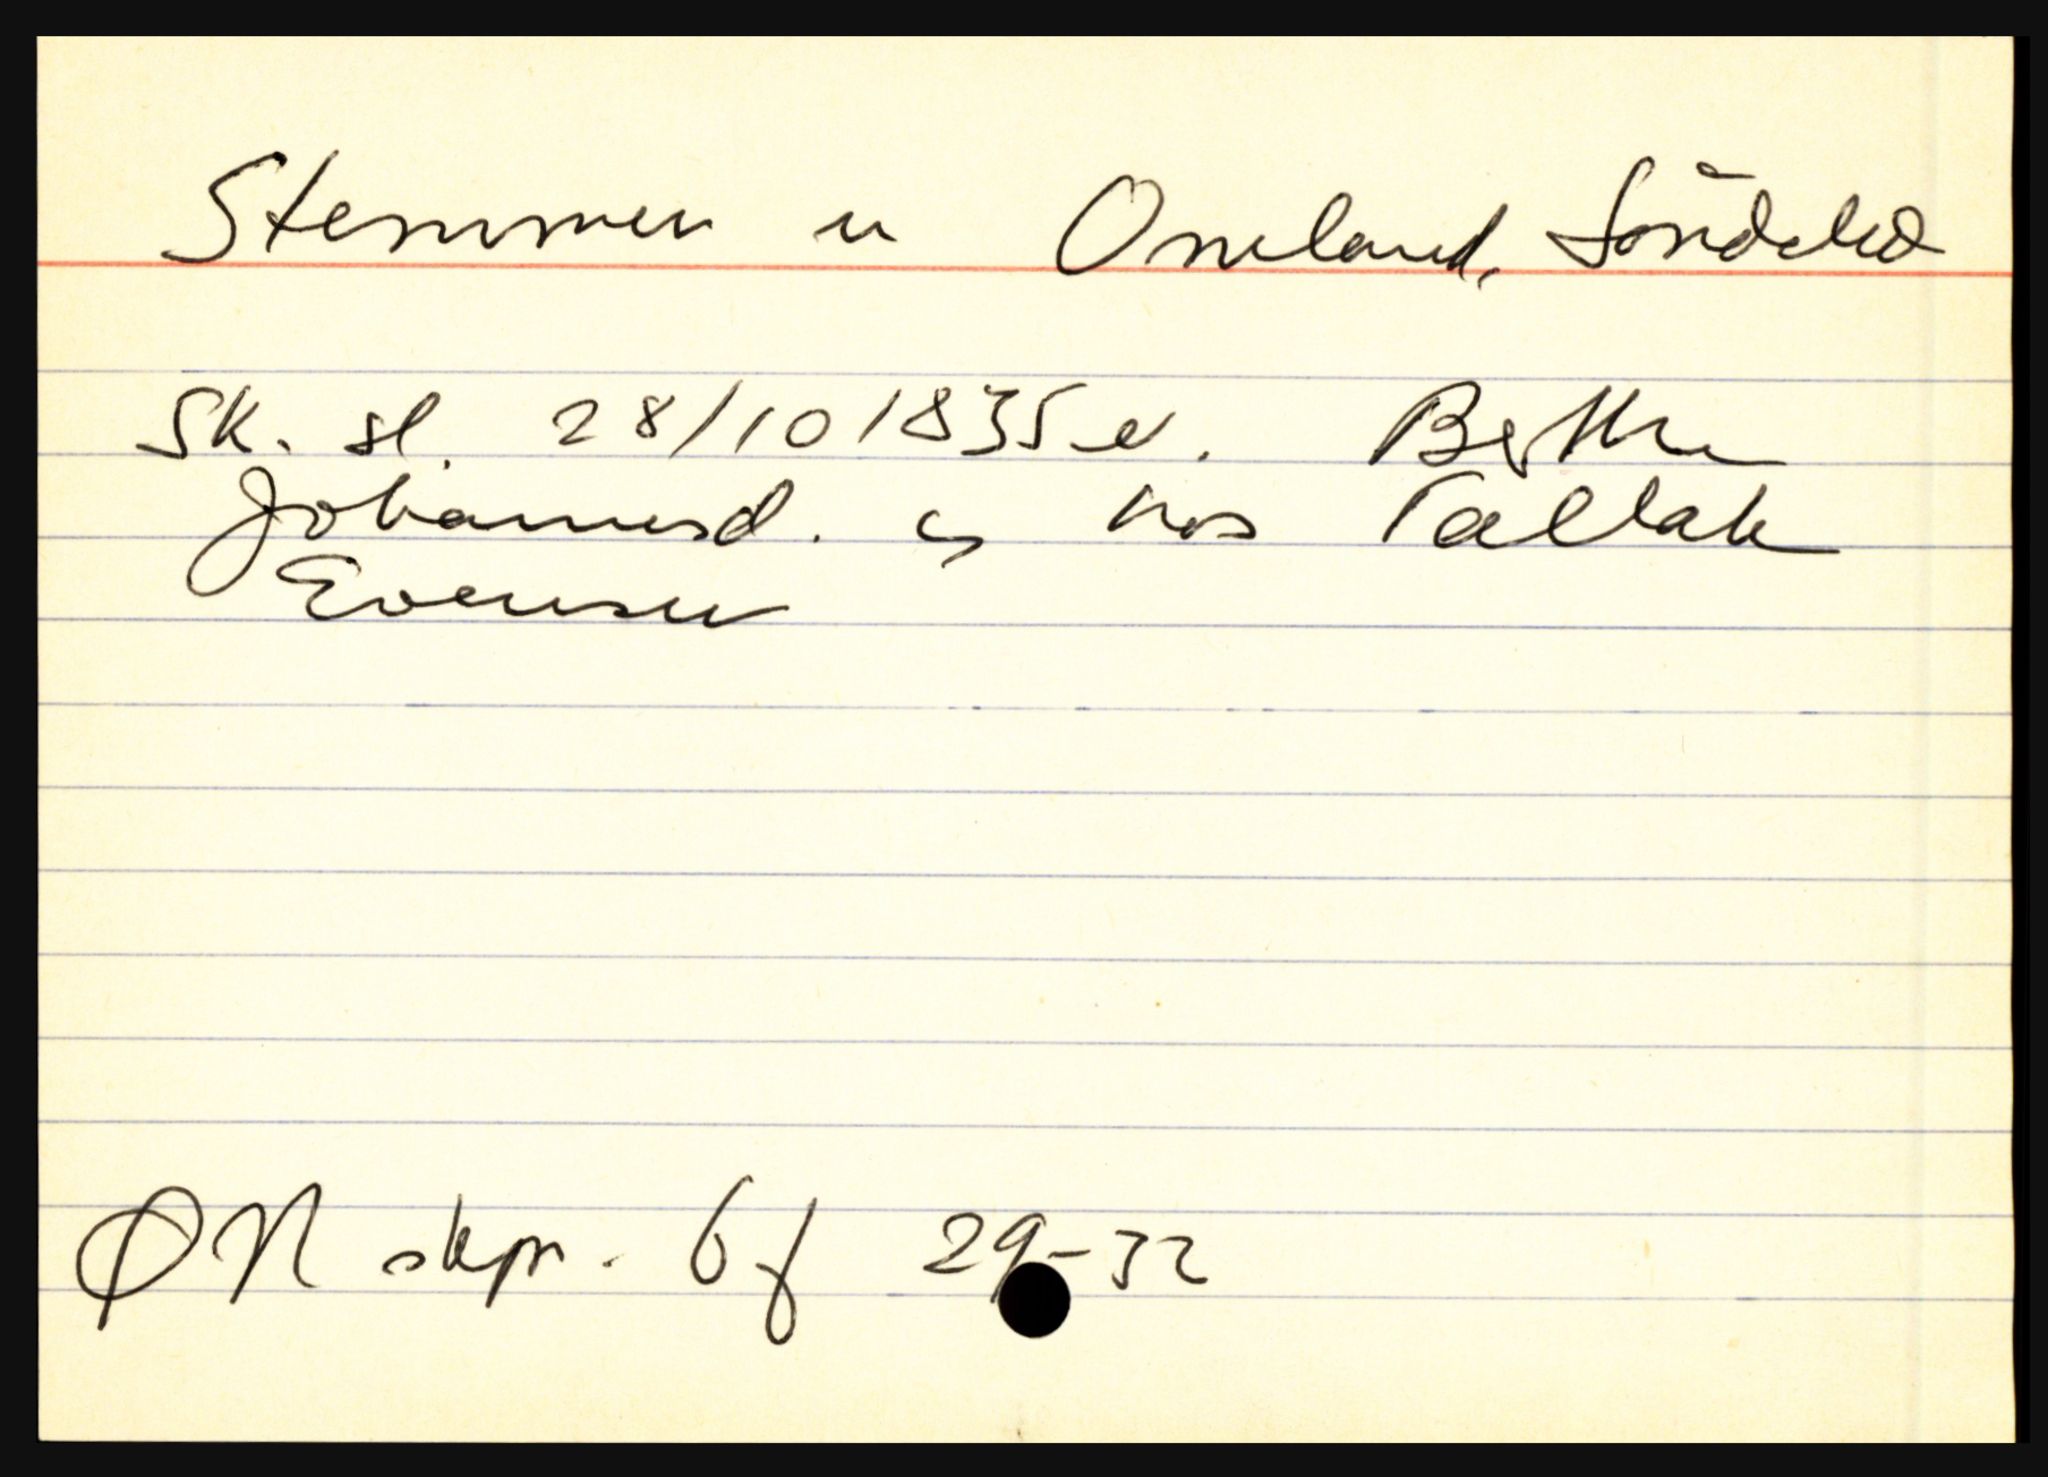 Stemmen u Omeland, Søndeled
Sk. sl. 28/10 1835 e. Berthe
Johannesd. og hos Tallak
Evensen
ØN skpr. 6 f 29-32